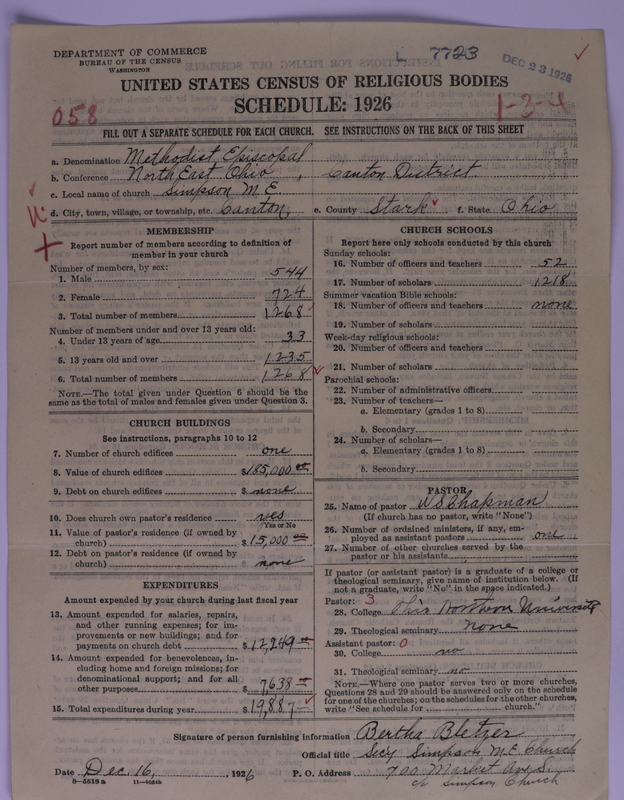 DEPARTMENT OF COMMERCE
BUREAU OF THE CENSUS
WASHINGTON
L 7723
DEC 23 1926
UNITED STATES CENSUS OF RELIGIOUS BODIES
SCHEDULE: 1926
058
1-3-4
FILL OUT A SEPARATE SCHEDULE FOR EACH CHURCH. SEE INSTRUCTIONS ON THE BACK OF THIS SHEET
a. Denomination Methodist Episcopal
b. Conference North East Ohio, Canton District
c. Local name of church Simpson M.E.
d. City, town, village, or township, etc. Canton, e. County Stark f. State Ohio
MEMBERSHIP
Report number of members according to definition of
member in your church
Number of members, by sex:
1. Male 544
2. Female 724
3. Total number of members 1268
Number of members under and over 13 years old:
4. Under 13 years of age 33
5. 13 years old and over 1235
6. Total number of members 1268
NOTE.—The total given under Question 6 should be
same as the total of males and females given under Question 3.
CHURCH BUILDINGS
See instructions, paragraphs 10 to 12
7. Number of church edifices one
8. Value of church edifices $185,000 00
9. Debt on church edifices $ none
10. Does church own pastor's residence yes
Yes or No
11. Value of pastor's residence (if owned by
church) $15,000 00
12. Debt on pastor's residence (if owned by
church) none
EXPENDITURES
Amount expended by your church during last fiscal year
13. Amount expended for salaries, repairs,
and other running expenses; for im-
provements or new buildings; and for
payments on church debt $12,249
14. Amount expended for benevolences, in-
cluding home and foreign missions; for
denominational support; and for all
other purposes $7638
15. Total expenditures during year $19,887
CHURCH SCHOOLS
Report here only schools conducted by this church
Sunday schools:
16. Number of officers and teachers 52
17. Number of scholars 1218
Summer vacation Bible schools:
18. Number of officers and teachers none
19. Number of scholars
Week-day religious schools:
20. Number of officers and teachers
21. Number of scholars
Parochial schools:
22. Number of administrative officers
23. Number of teachers—
a. Elementary (grades 1 to 8)
b. Secondary
24. Number of scholars—
a. Elementary (grades 1 to 8)
b. Secondary
PASTOR
25. Name of pastor W S Chapman
(If church has no pastor, write "None")
26. Number of ordained ministers, if any, em-
ployed as assistant pastors one
27. Number of other churches served by the
pastor or his assistants
If pastor (or assistant pastor) is a graduate of a college or
theological seminary, give name of institution below. (If
not a graduate, write "No" in the space indicated.)
Pastor: 3
28. College Ohio Northern University
29. Theological seminary none
Assistant pastor: 0
30. College no
31. Theological seminary no
NOTE.—Where one pastor serves two or more churches,
Questions 28 and 29 should be answered only on the schedule
for one of the churches; on the schedules for the other churches,
write "See schedule for church."
Signature of person furnishing information Bertha Bletzer
Official title Secy Simpson M.E. Church
Date Dec. 16, 1926 P. O. Address 700 Market Ave S.
c/o Simpson Church